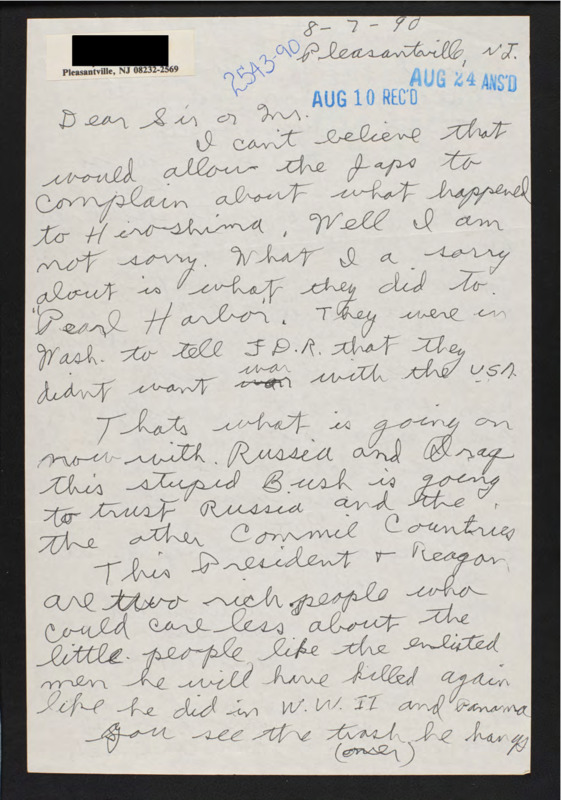 8-7-90
Pleasantville, NJ.
Pleasantville, NJ 08232-2569
2543-90
AUG 24 ANS'D
AUG 10 REC'D
Dear Sir or Mr.
I can't believe that
would allow the Japs to
complain about what happened
to Hiroshima, Well I am
not sorry. What I a sorry
about is what they did to
"Pearl Harbor". They were in
Wash. to tell F.D.R. that they
war
didnt want with the USA.
Thats what is going on
now with Russia and Iraq
this stupid Bush is going
to trust Russia and the
the other Commie Countries
This President + Reagan
are two rich people who
could care less about the
little people like the enlisted
men he will have killed again
like he did in W.W. II and Panama
You see the trash he hangs
(over)